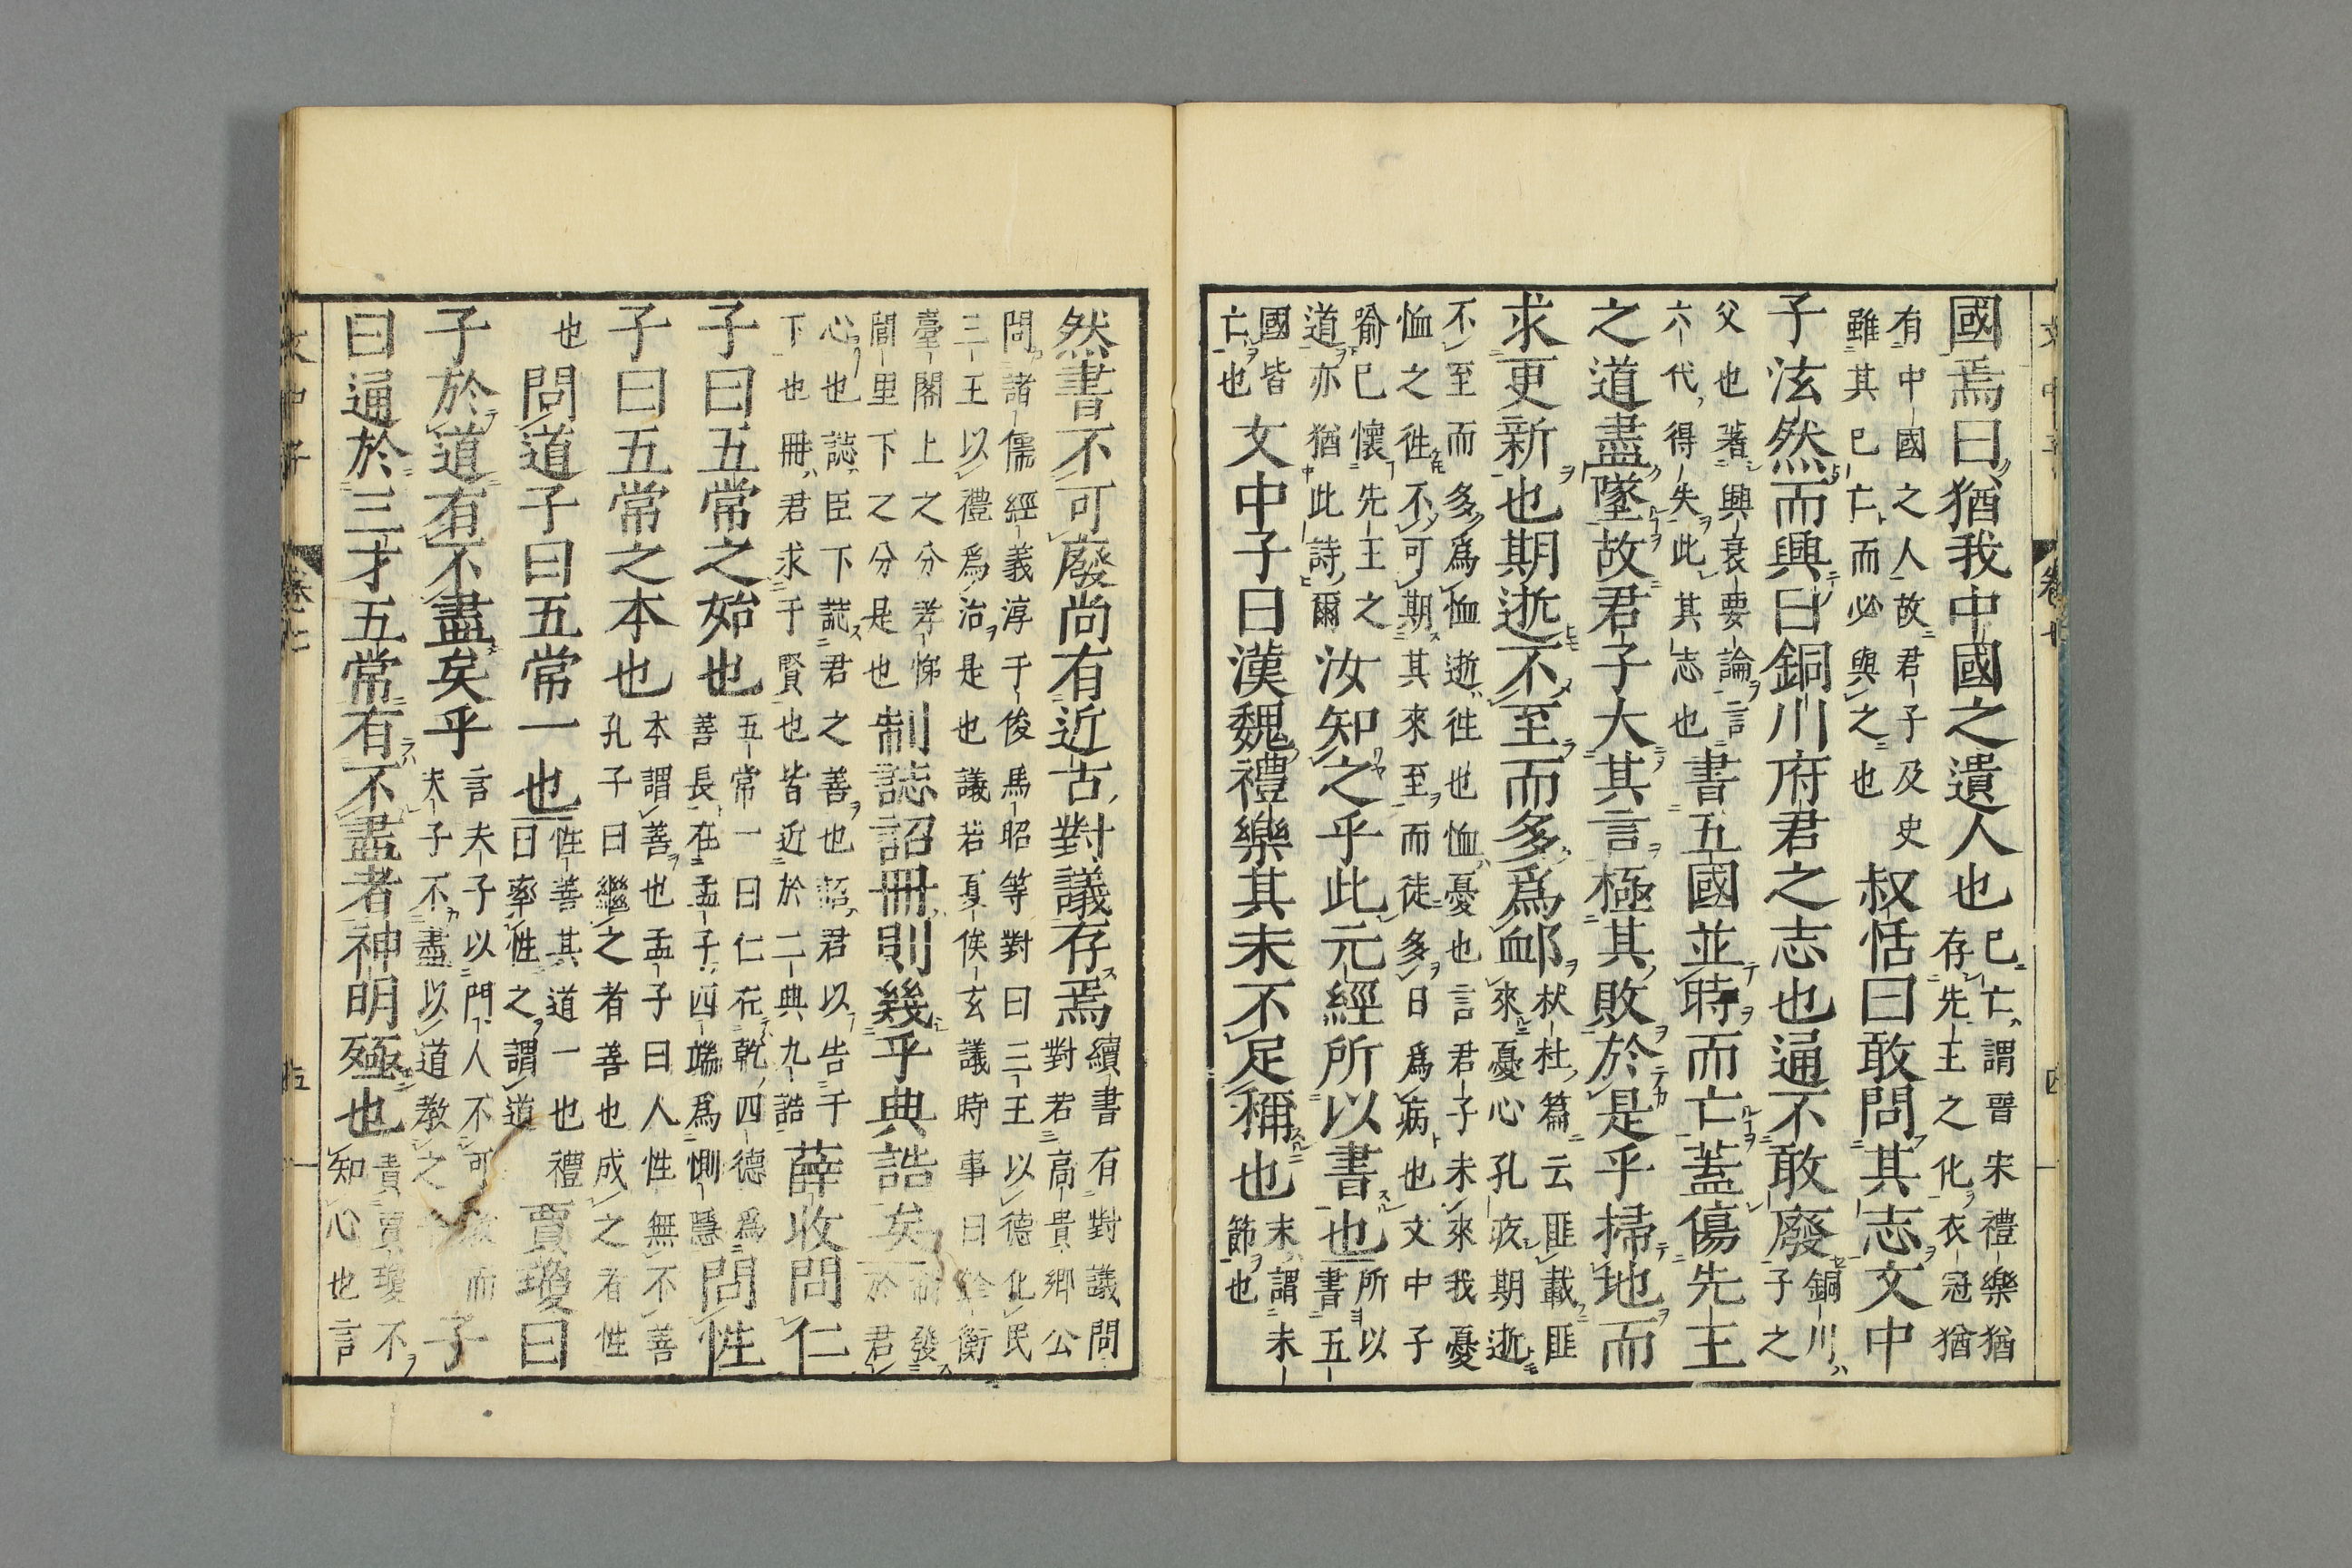 國焉曰猶我中國之遺人也 已亡謂晉宋禮樂猶存先王之化衣冠猶
有中國之人故君子及史雖其已亡而必與之也 叔恬曰敢問其志文中
子泫然而興曰銅川府君之志也通不敢廢 銅川子之
父也著興衰要論言六代得失此其志也 書五國並時而亡蓋傷先王
之道盡墜故君子大其言極其敗於是乎掃地而
求更新也期逝不至而多爲卹 杕杜篇云匪載匪來憂心孔疚期逝
不至而多爲恤逝徃也恤憂也言君子未來我憂恤之徃不可期其來至而徒多日爲病也文中子
喻已懷先王之道亦猶此詩爾 汝知之乎此元經所以書也 所以書五
國皆亡也 文中子曰漢魏禮樂其末不足稱也 末謂末節也
然書不可廢尚有近古對議存焉 續書有對議問對若高貴鄉公
問諸儒經義淳于俊馬昭等對曰三王以德化民三王以禮爲治是也議若夏侯玄議時事曰銓衡
臺閣上之分孝悌閭里下之分是也 制誌詔冊則幾乎典誥矣 制發於君
心也誌臣下誌君之善也詔君以告于下也冊君求于賢也皆近於二典九誥 薛收問仁
子曰五常之始也 五常一曰仁在乾四德爲善長在孟子四端爲惻隱 問性
子曰五常之本也 本謂善也孟子曰人性無不善孔子曰繼之者善也成之者性
也 問道子曰五常一也 性善其道一也禮曰率性之謂道 賈瓊曰
子於道有不盡矣乎 言夫子以門人不可教而夫子不盡以道教之 子
曰通於三才五常有不盡者神明殛也 責賈瓊不知心也言
文中子
卷七
五
卷七
四